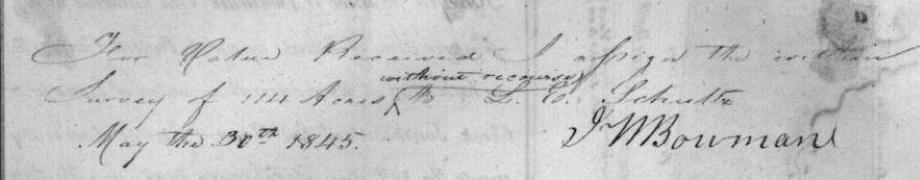 For Value Received I assign the within
without recourse
Survey of 114 Acres to L. C. Schultz
May the 30th 1845.
Jn W Bowman